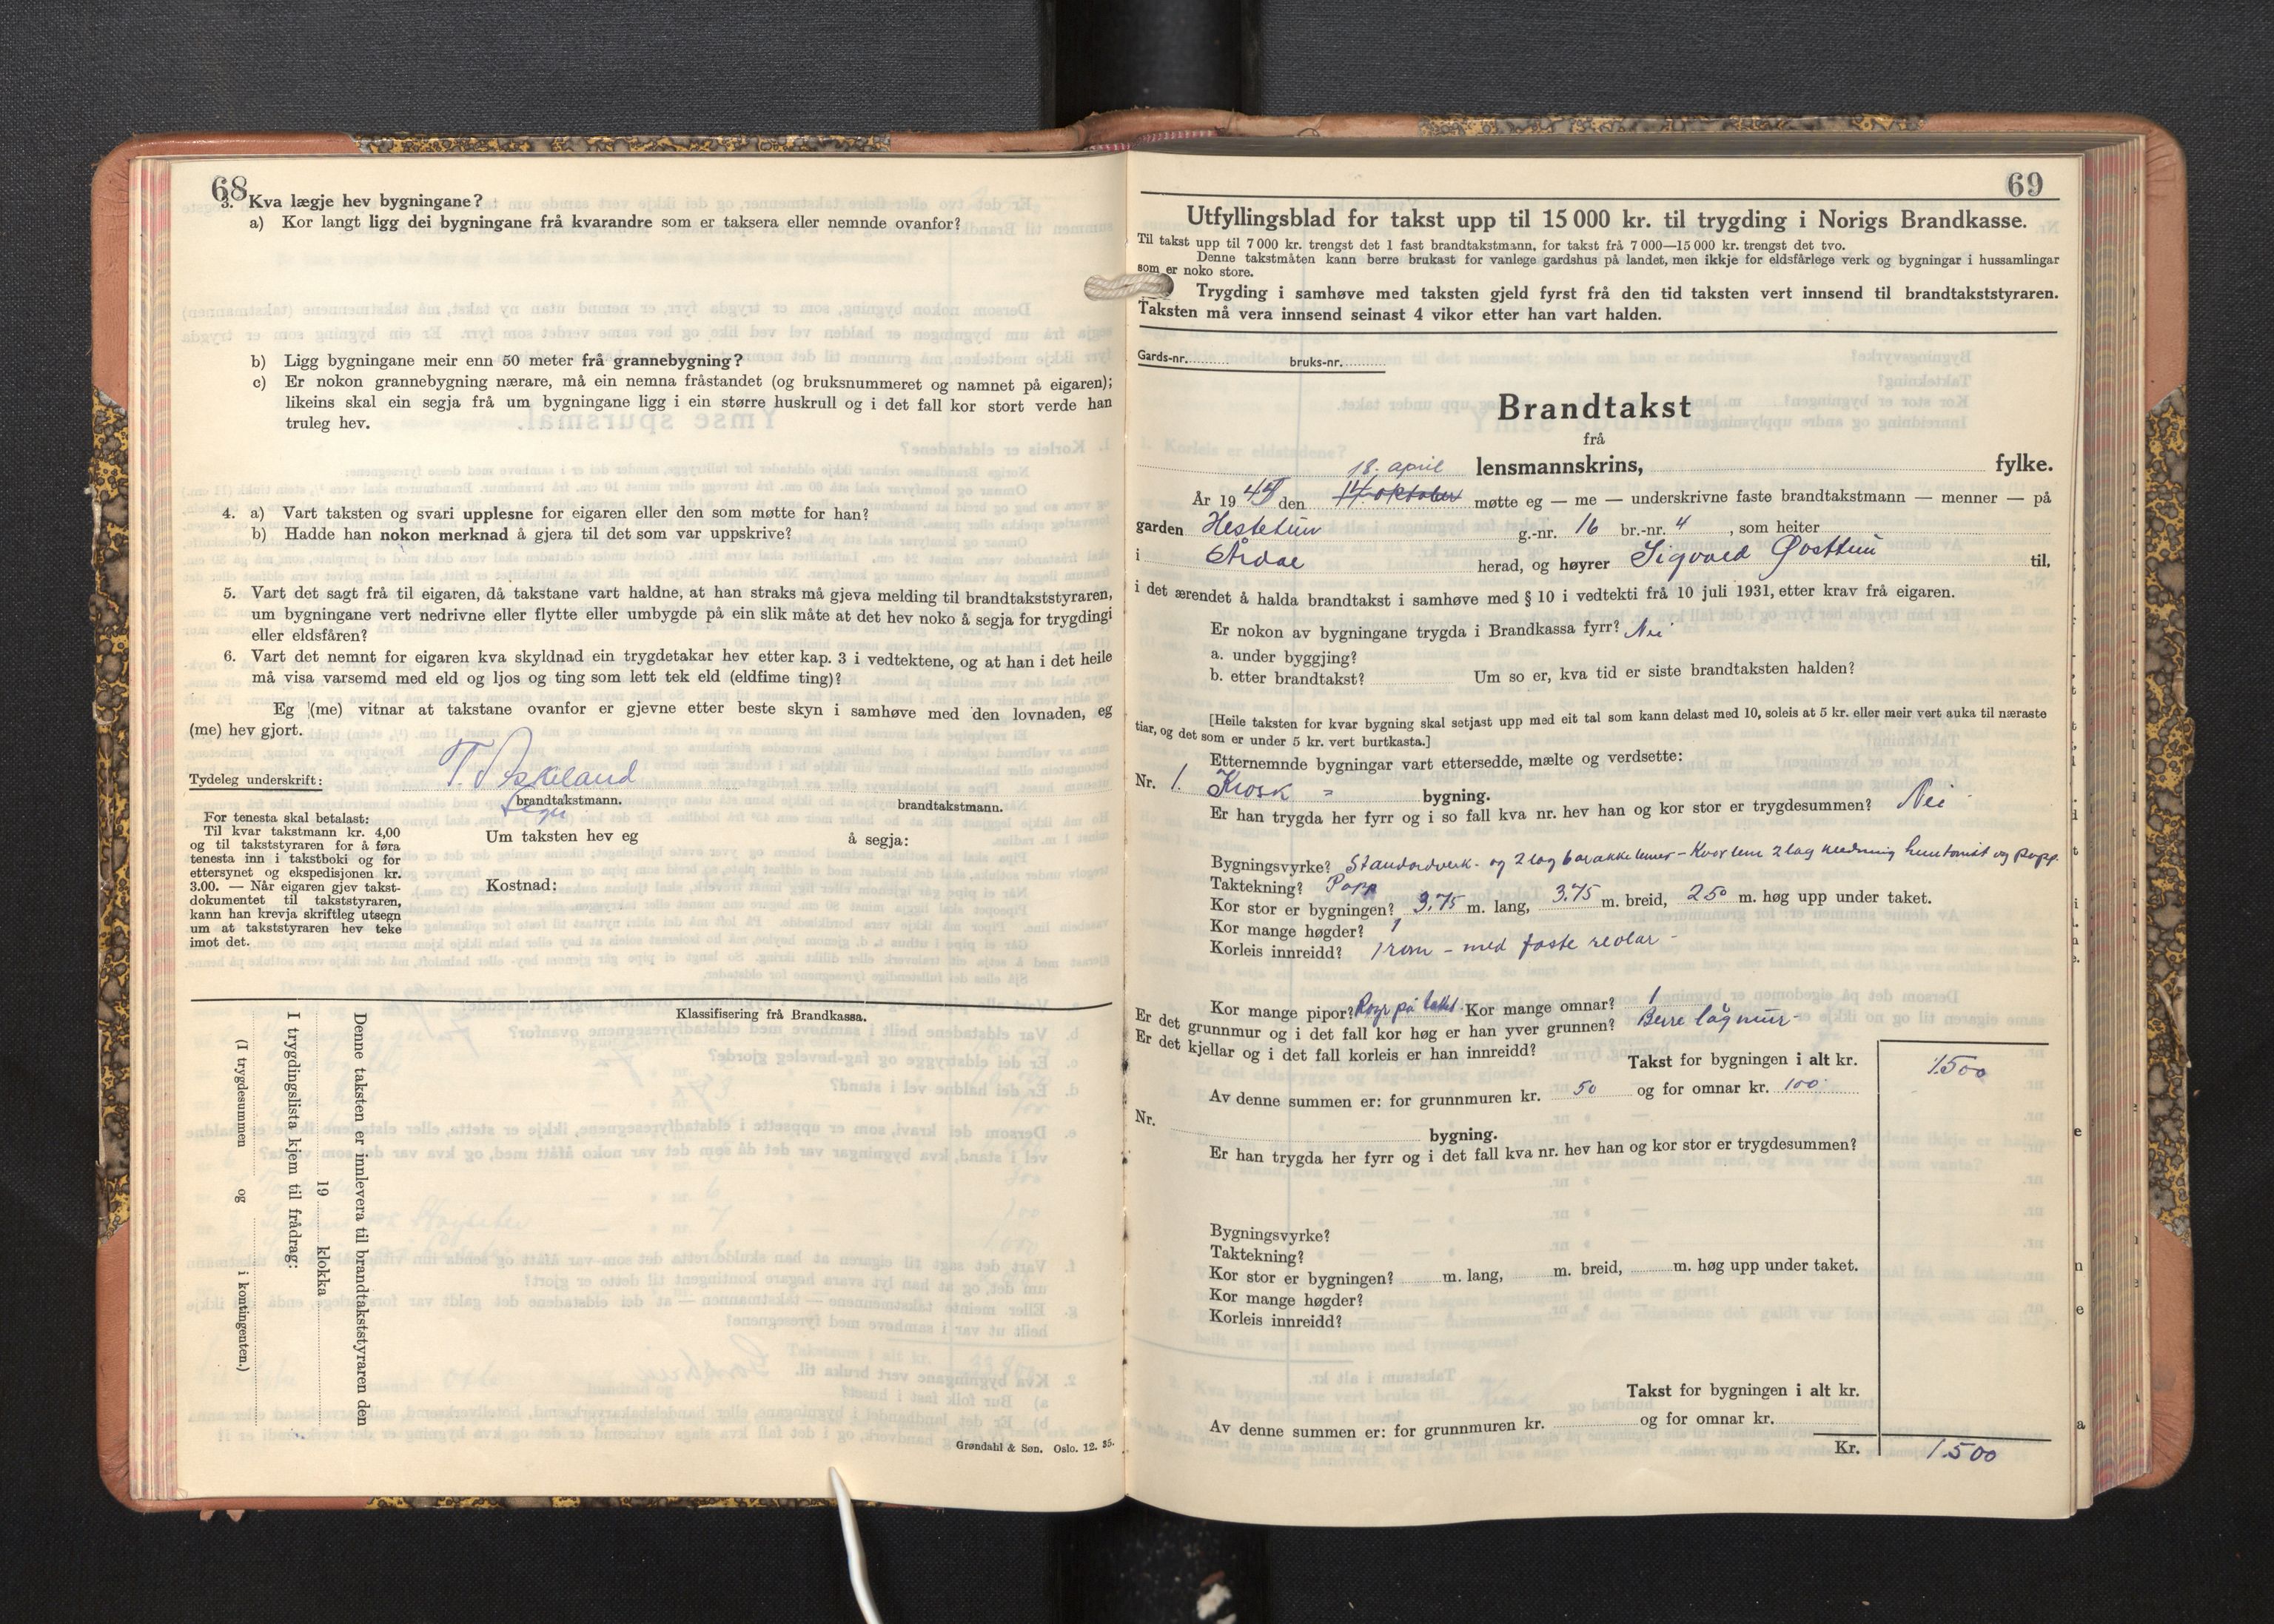 68
3. Kva lægje hev bygningane?
a) Kor langt ligg dei bygningane frå kvarandre som er taksera eller nemnde ovanfor?
b) Ligg bygningane meir enn 50 meter frå grannebygning?
c) Er nokon grannebygning nærare, må ein nemna fråstandet (og bruksnummeret og namnet på eigaren);
likeins skal ein segja frå um bygningane ligg i ein større huskrull og i det fall kor stort verde han
truleg hev.
4. a) Vart taksten og svari upplesne for eigaren eller den som møtte for han?
b) Hadde han nokon merknad å gjera til det som var uppskrive?
5. Vart det sagt frå til eigaren, då takstane vart haldne, at han straks må gjeva melding til brandtakststyraren,
um bygningane vert nedrivne eller flytte eller umbygde på ein slik måte at det hev noko å segja for trygdingi
eller eldsfåren?
6. Vart det nemnt for eigaren kva skyldnad ein trygdetakar hev etter kap. 3 i vedtektene, og at han i det heile
må visa varsemd med eld og ljos og ting som lett tek eld (eldfime ting)?
Eg (me) vitnar at takstane ovanfor er gjevne etter beste skyn i samhøve med den lovnaden, eg
(me) hev gjort.
Tydeleg underskrift: T. Askeland
brandtakstmann. brandtakstmann.
For tenesta skal betalast:
Til kvar takstmann kr. 4,00
og til takststyraren for å føra
tenesta inn i takstboki og for
ettersynet og ekspedisjonen kr.
3.00. — Når eigaren gjev takst-
dokumentet til takststyraren,
kann han krevja skriftleg utsegn
um at takststyraren hev teke
imot det.
Um taksten hev eg å segja:
Kostnad:
Klassifisering frå Brandkassa.
Denne taksten er innlevera til brandtakststyraren den
19 klokka
I trygdingslista kjem til frådrag:
(I trygdesummen og i kontingenten.)
Grøndahl & Søn. Oslo. 12. 35.
69
Utfyllingsblad for takst upp til 15 000 kr. til trygding i Norigs Brandkasse.
Til takst upp til 7 000 kr. trengst det 1 fast brandtakstmann, for takst frå 7 000—15 000 kr. trengst det tvo.
Denne takstmåten kann berre brukast for vanlege gardshus på landet, men ikkje for eldsfårlege verk og bygningar i hussamlingar
som er noko store.
Trygding i samhøve med taksten gjeld fyrst frå den tid taksten vert innsend til brandtakststyraren.
Taksten må vera innsend seinast 4 vikor etter han vart halden.
Gards-nr. bruks-nr.
Brandtakst
frå
lensmannskrins, fylke.
18. april
År 1945 den 14. oktober møtte eg — me — underskrivne faste brandtakstmann — menner — på
garden Hestetun g.-nr. 16 br.-nr. 4, som heiter
i Årdal herad, og høyrer Sigvald Østtun til,
i det ærendet å halda brandtakst i samhøve med § 10 i vedtekti frå 10 juli 1931, etter krav frå eigaren.
Er nokon av bygningane trygda i Brandkassa fyrr? Nei
a. under byggjing?
b. etter brandtakst? Um so er, kva tid er siste brandtaksten halden?
[Heile taksten for kvar bygning skal setjast upp med eit tal som kann delast med 10, soleis at 5 kr. eller meir vert auka til næraste
tiar, og det som er under 5 kr. vert burtkasta.]
Etternemnde bygningar vart ettersedde, mælte og verdsette:
Nr. 1. Kiosk = bygning.
Er han trygda her fyrr og i so fall kva nr. hev han og kor stor er trygdesummen? Nei
Bygningsvyrke? Standardverk og 2 lag barakkelemer - Kvar lem 2 lag kledning huntonit og papp.
Taktekning? Papp
Kor stor er bygningen? 3,75 m. lang, 3.75 m. breid, 2.50 m. høg upp under taket.
Kor mange høgder? 1
Korleis innreidd? 1 rom - med faste reolar -
Kor mange pipor? Røyr på taket. Kor mange omnar? 1
Er det grunnmur og i det fall kor høg er han yver grunnen? Berre låg mur -
Er det kjellar og i det fall korleis er han innreidd?
Takst for bygningen i alt kr. 1.500
Av denne summen er: for grunnmuren kr. 50 og for omnar kr. 100
Nr. bygning.
Er han trygda her fyrr og i det fall kva nr. hev han og kor stor er trygdesummen?
Bygningsvyrke?
Taktekning?
Kor stor er bygningen? m. lang, m. breid, m. høg upp under taket.
Kor mange høgder?
Korleis innreidd?
Takst for bygningen i alt kr.
Av denne summen er: for grunnmuren kr. og for omnar kr.
Kr. 1.500